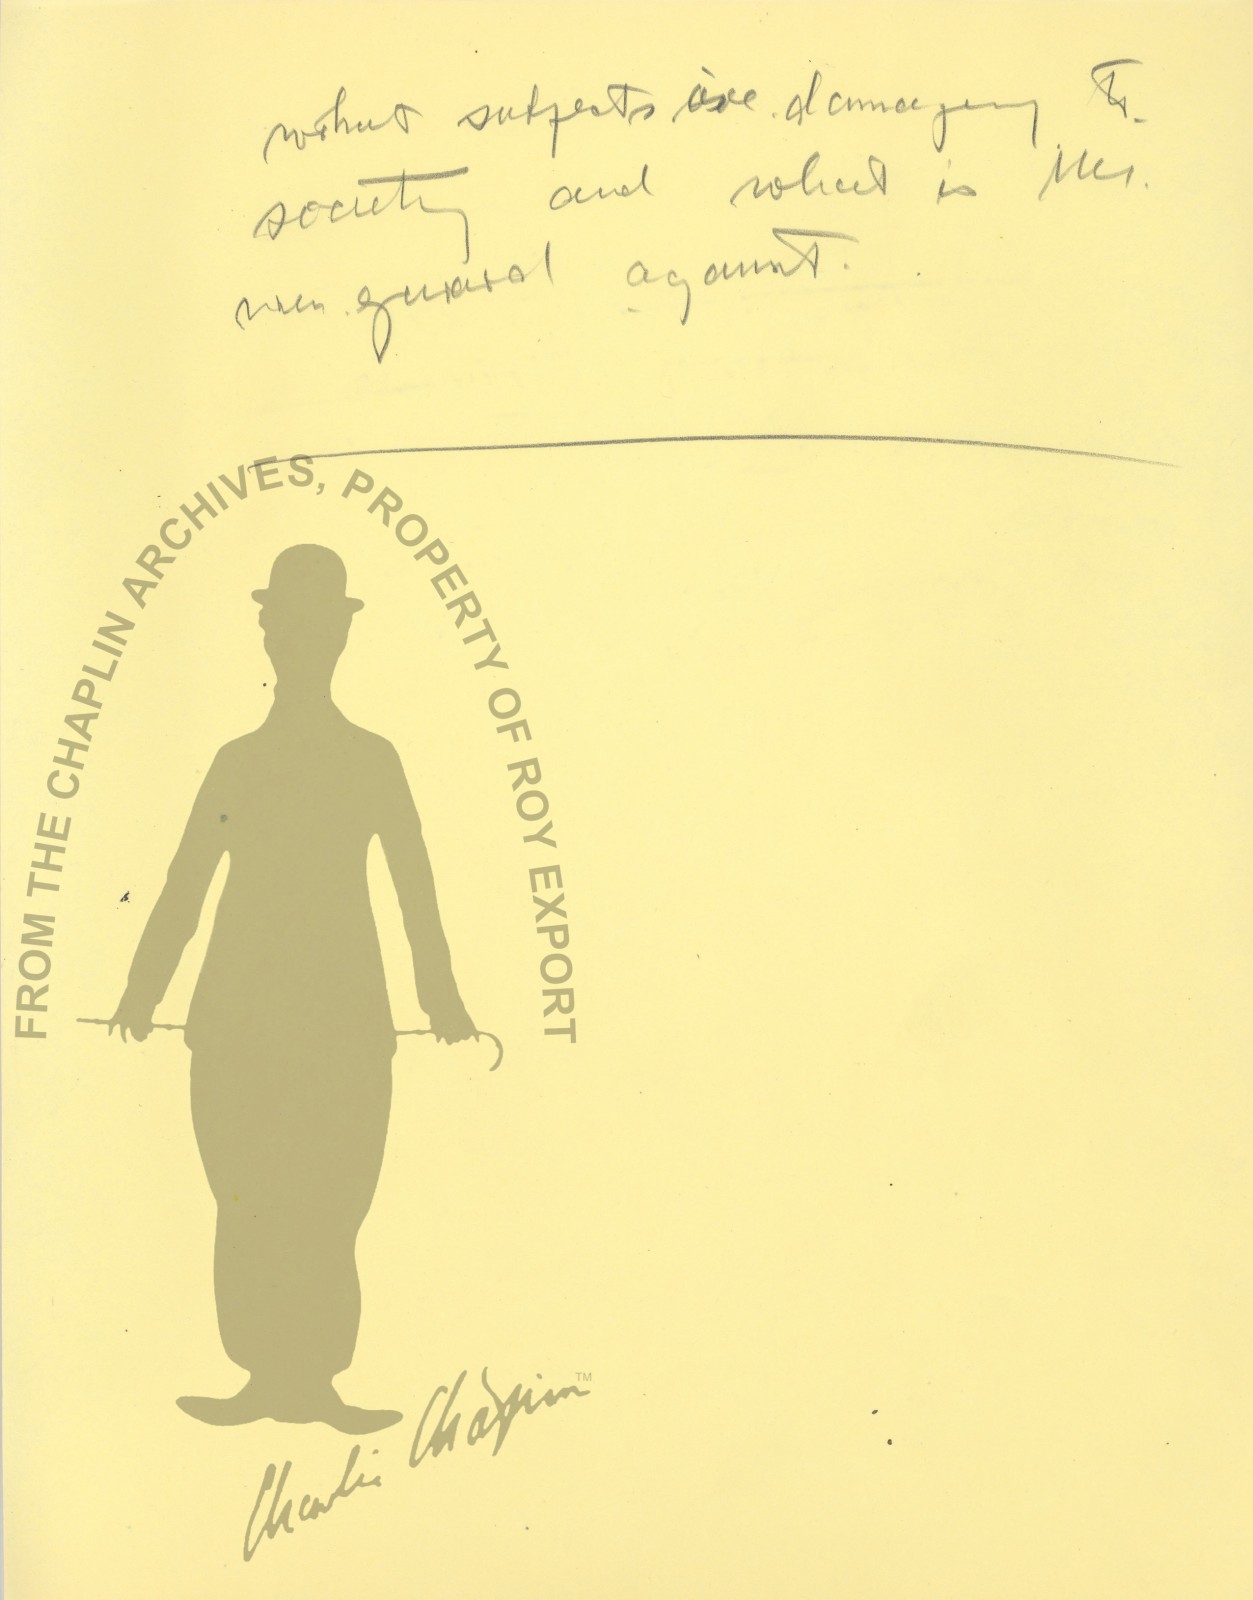 what subjects are damaging to
society and what is
against.
FROM THE CHAPLIN ARCHIVES, PROPERTY OF ROY EXPORT
Charlie Chaplin TM